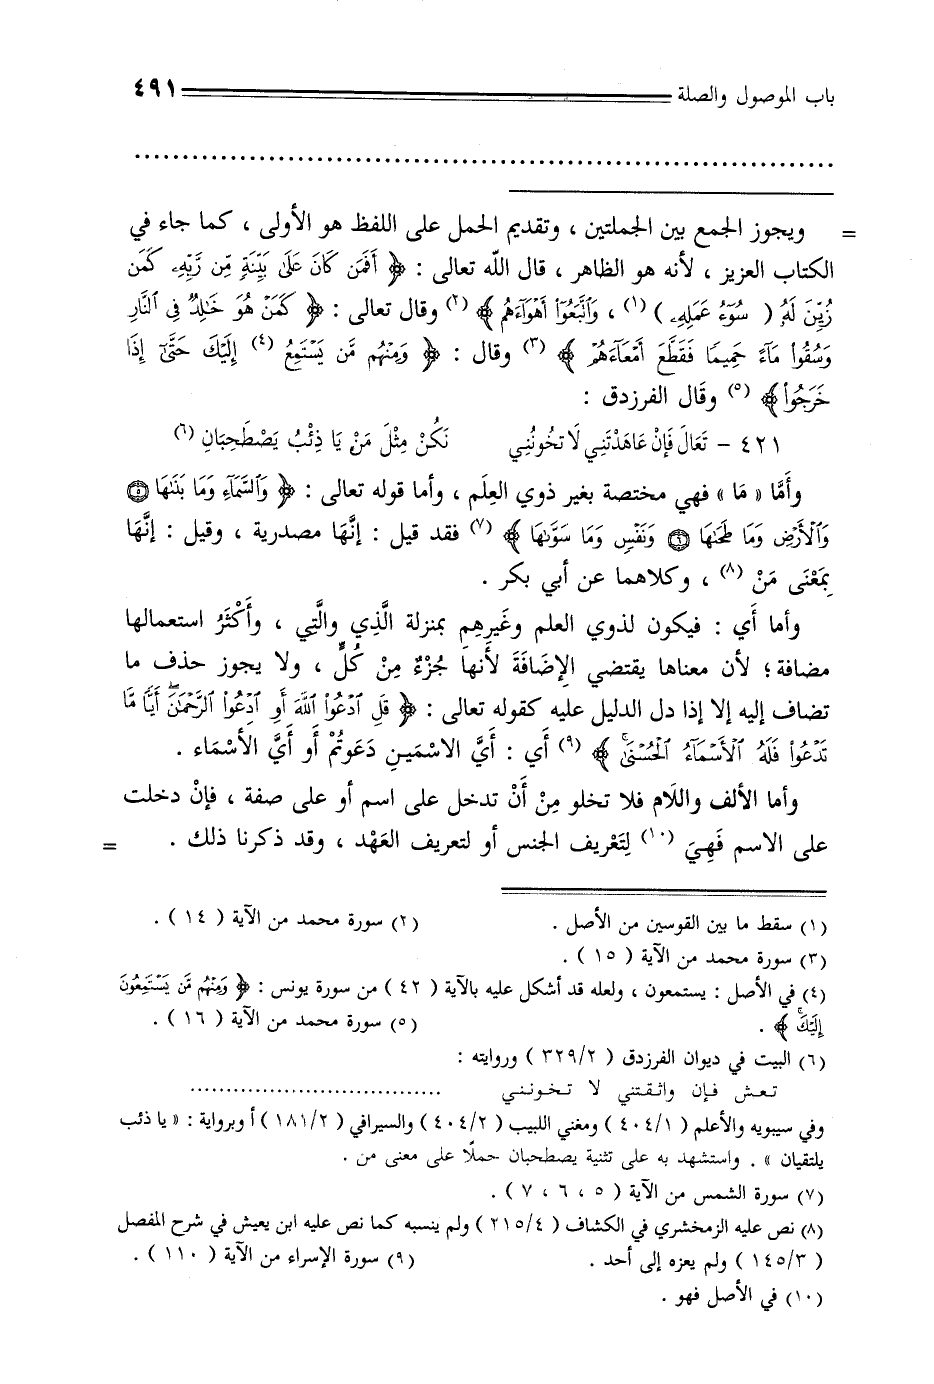 باب الموصول والصلة ٤٩١
= ويجوز الجمع بين الجملتين ، وتقديم الحمل على اللفظ هو الأولى ، كما جاء في
الكتاب العزيز ، لأنه هو الظاهر ، قال الله تعالى : ﴿ أَفَمَن كَانَ عَلَىٰ بَيِّنَةٍ مِّن رَّبِّهِۦ كَمَن
زُيِّنَ لَهُۥ ( سُوٓءُ عَمَلِهِۦ ) (١) ، وَٱتَّبَعُوٓا۟ أَهْوَآءَهُم ﴾ (٢) وقال تعالى : ﴿ كَمَنْ هُوَ خَٰلِدٌ فِى ٱلنَّارِ
وَسُقُوا۟ مَآءً حَمِيمًا فَقَطَّعَ أَمْعَآءَهُمْ ﴾ (٣) وقال : ﴿ وَمِنْهُم مَّن يَسْتَمِعُ (٤) إِلَيْكَ حَتَّىٰٓ إِذَا
خَرَجُوا۟ ﴾ (٥) وقَال الفرزدق :
٤٢١ - تَعَالَ فَإِنْ عَاهَدْتَنِي لَا تَخُونُنِي نَكُنْ مِثْلَ مَنْ يَا ذِئْبُ يَصْطَحِبَانِ (٦)
وأَمَّا « مَا » فهي مختصة بغير ذوي العِلَم ، وأما قوله تعالى : ﴿ وَٱلسَّمَآءِ وَمَا بَنَىٰهَا ۝٥
وَٱلْأَرْضِ وَمَا طَحَىٰهَا ۝٦ وَنَفْسٍ وَمَا سَوَّىٰهَا ﴾ (٧) فقد قيل : إنَّهَا مصدرية ، وقيل : إنَّهَا
بِمَعْنَى مَنْ (٨) ، وكلاهما عن أبي بكر .
وأما أَي : فيكون لذوي العلم وغَيرِهِم بمنزلة الَّذِي والَّتِي ، وأَكْثَرُ استعمالها
مضافة ؛ لأن معناها يقتضي الإِضَافَةَ لأنها جُزْءٌ مِنْ كُلٍّ ، ولا يجوز حذف ما
تضاف إليه إلا إذا دل الدليل عليه كقوله تعالى : ﴿ قُلِ ٱدْعُوا۟ ٱللَّهَ أَوِ ٱدْعُوا۟ ٱلرَّحْمَٰنَ ۖ أَيًّا مَّا
تَدْعُوا۟ فَلَهُ ٱلْأَسْمَآءُ ٱلْحُسْنَىٰ ۚ ﴾ (٩) أي : أَيَّ الاسْمَينِ دَعَوتُمْ أَو أَيَّ الأَسْمَاء .
وأما الألف واللَام فلا تخلو مِنْ أَنْ تدخل على اسم أو على صفة ، فإنْ دخلت
على الاسم فَهِيَ (١٠) لِتَعْرِيف الجنس أو لتعريف العَهْد ، وقد ذكرنا ذلك . =
(١) سقط ما بين القوسين من الأصل . (٢) سورة محمد من الآية ( ١٤ ) .
(٣) سورة محمد من الآية ( ١٥ ) .
(٤) في الأصل : يستمعون ، ولعله قد أشكل عليه بالآية ( ٤٢ ) من سورة يونس : ﴿ وَمِنْهُم مَّن يَسْتَمِعُونَ
إِلَيْكَ ۚ ﴾ . (٥) سورة محمد من الآية ( ١٦ ) .
(٦) البيت في ديوان الفرزدق ( ٣٢٩/٢ ) وروايته :
تعش فإن واثقتني لا تخونني ................................
وفي سيبويه والأعلم ( ٤٠٤/١ ) ومغني اللبيب ( ٤٠٤/٢ ) والسيرافي ( ١٨١/٢ ) أ وبرواية : « يا ذئب
يلتقيان » . واستشهد به على تثنية يصطحبان حملًا على معنى من .
(٧) سورة الشمس من الآية ( ٥ ، ٦ ، ٧ ) .
(٨) نص عليه الزمخشري في الكشاف ( ٢١٥/٤ ) ولم ينسبه كما نص عليه ابن يعيش في شرح المفصل
( ١٤٥/٣ ) ولم يعزه إلى أحد . (٩) سورة الإسراء من الآية ( ١١٠ ) .
(١٠) في الأصل فهو .